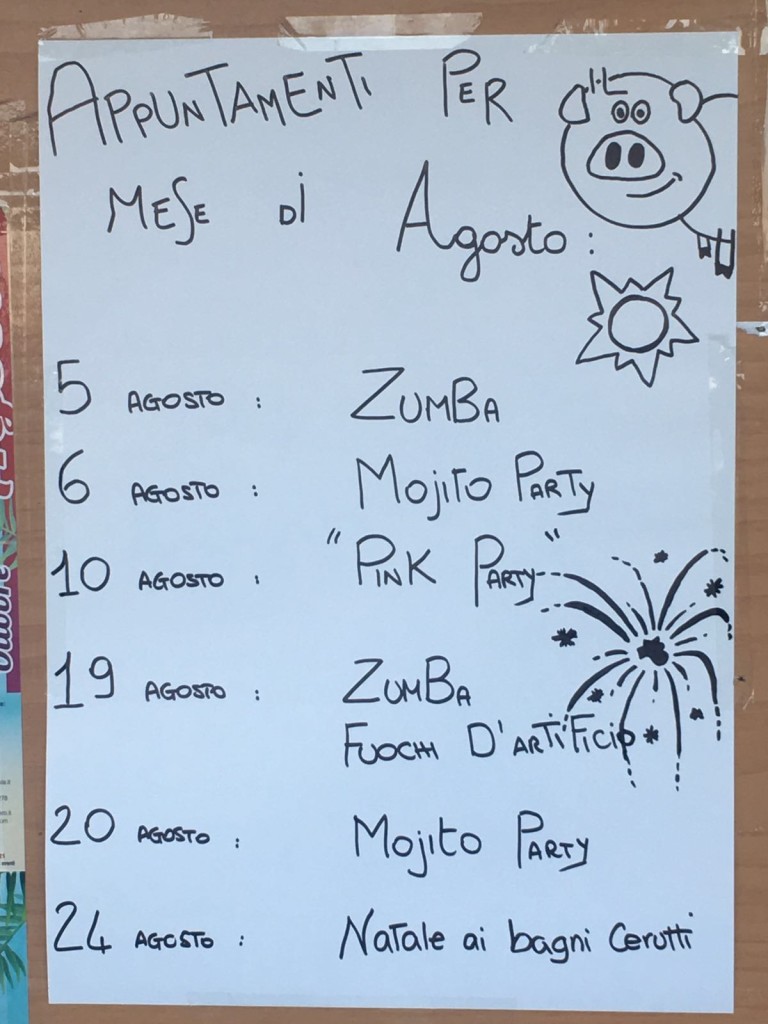 APPUNTAMENTI PER
MESE DI Agosto:
5 AGOSTO : ZUMBA
6 AGOSTO : Mojito PARTY
10 AGOSTO : "PINK PARTY"
19 AGOSTO : ZUMBA
FUOCHI D'ARTIFICIO
20 AGOSTO : Mojito PARTY
24 AGOSTO : Natale ai bagni Cerutti